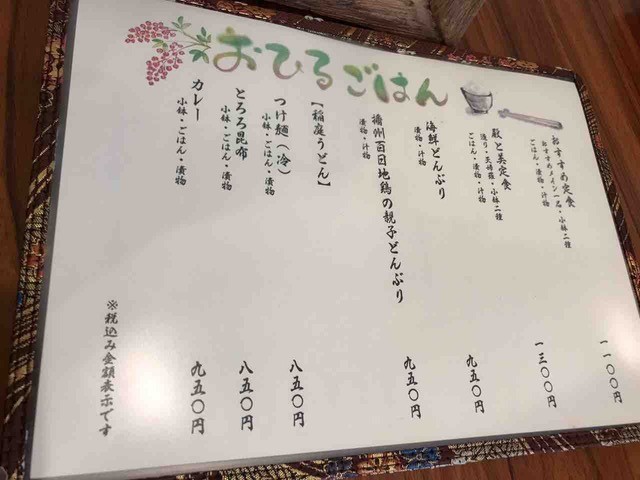 おひるごはん
おすすめ定食
おすすめメイン一名・小鉢二種
ごはん・漬物・汁物
一一〇〇円
敢と美定食
造り・天婦羅・小鉢二種
ごはん・漬物・汁物
一三〇〇円
海鮮どんぶり
漬物・汁物
九五〇円
播州百日地鶏の親子どんぶり
漬物・汁物
九五〇円
【稲庭うどん】
つけ麺(冷)
小鉢・ごはん・漬物
八五〇円
とろろ昆布
小鉢・ごはん・漬物
八五〇円
カレー
小鉢・ごはん・漬物
九五〇円
※税込み金額表示です